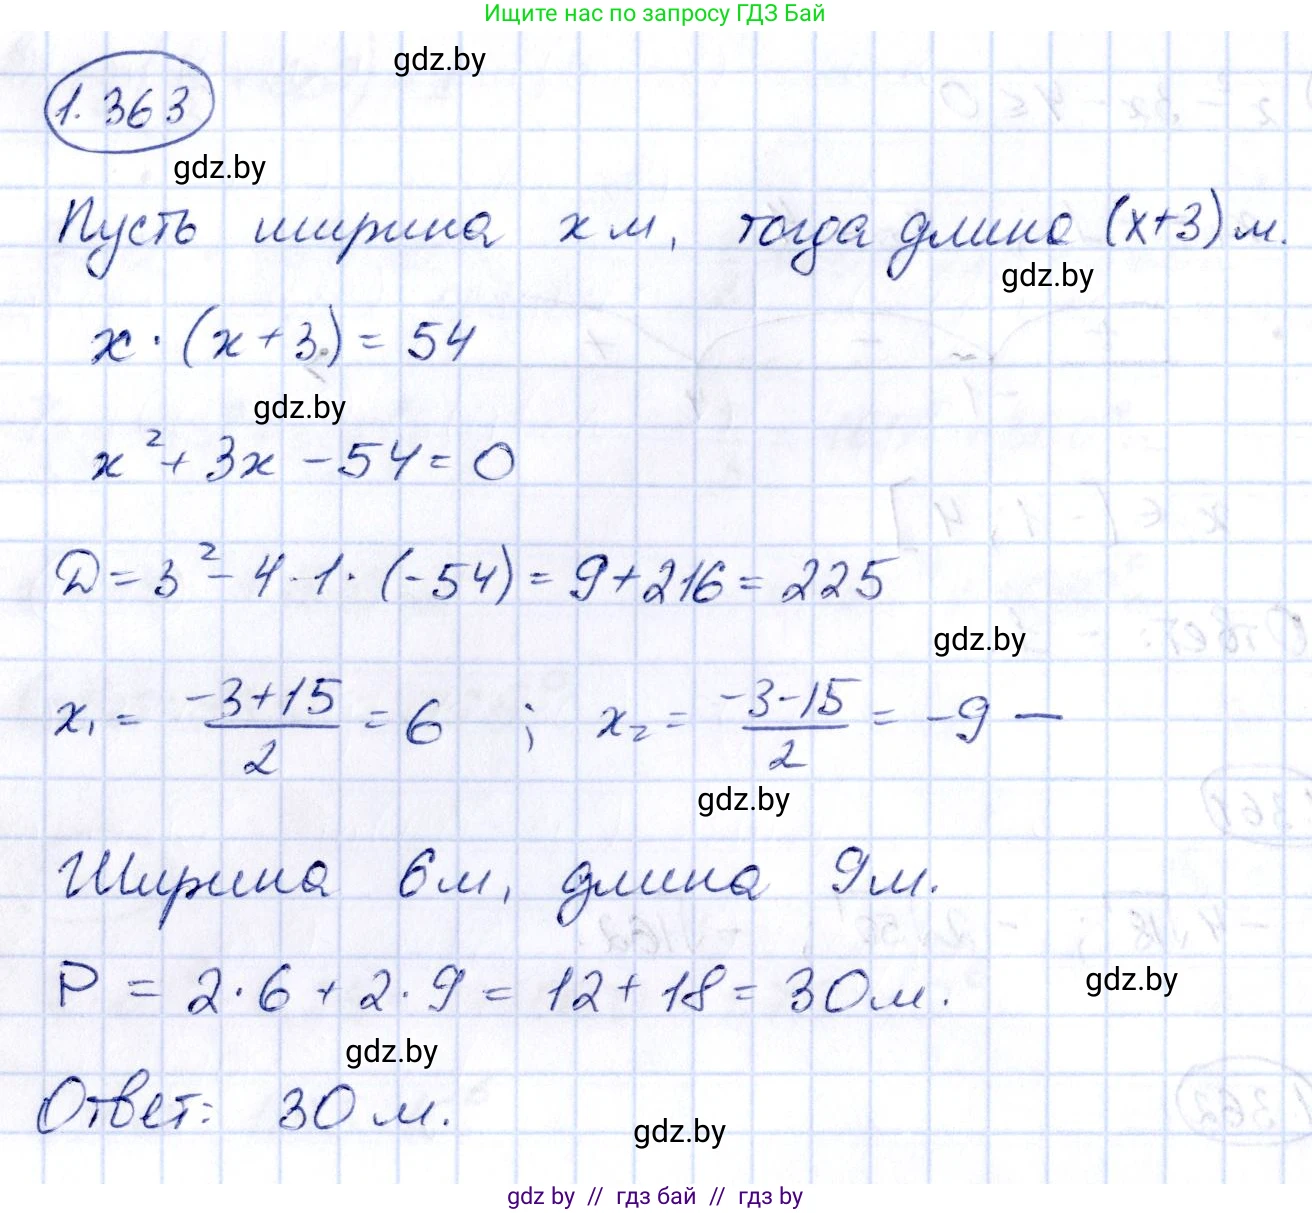 Ищите нас по запросу ГДЗ Бай
gdz.by
1.363
gdz.by
Пусть ширина x м, тогда длина (x+3) м.
gdz.by
x · (x+3) = 54
gdz.by
x² + 3x - 54 = 0
D = 3² - 4·1·(-54) = 9 + 216 = 225
gdz.by
x₁ = (-3+15)/2 = 6 ; x₂ = (-3-15)/2 = -9 —
gdz.by
Ширина 6 м, длина 9 м.
P = 2·6 + 2·9 = 12 + 18 = 30 м.
gdz.by
gdz.by
Ответ: 30 м.
gdz.by
gdz by // гдз бай // gdz by